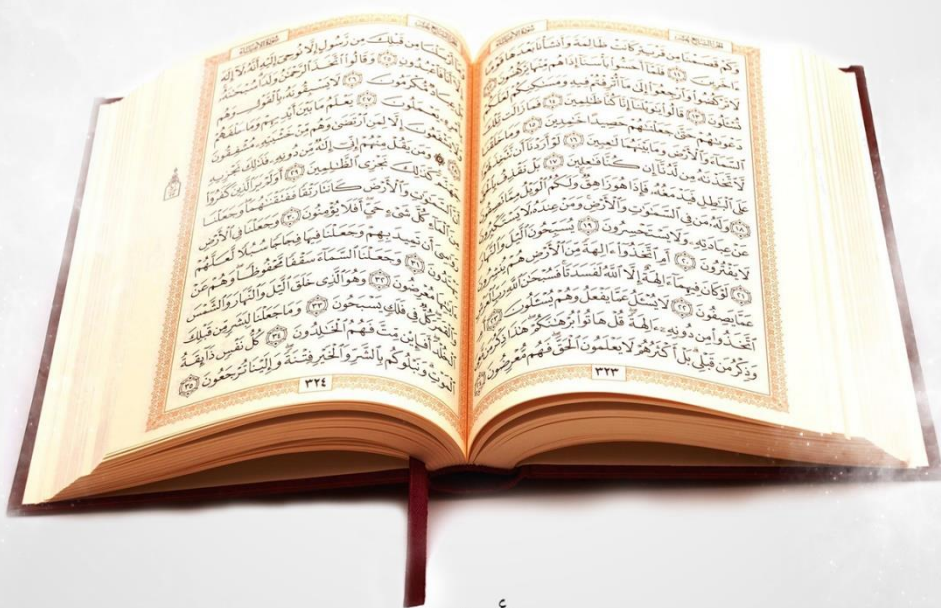 وَكَمْ قَصَمْنَا مِن قَرْيَةٍ كَانَتْ ظَالِمَةً وَأَنشَأْنَا بَعْدَهَا
ءَاخَرِينَ ١١ فَلَمَّآ أَحَسُّوا۟ بَأْسَنَآ إِذَا هُم مِّنْهَا يَرْكُضُونَ
لَا تَرْكُضُوا۟ وَٱرْجِعُوٓا۟ إِلَىٰ مَآ أُتْرِفْتُمْ فِيهِ وَمَسَٰكِنِكُمْ
تُسْـَٔلُونَ ١٣ قَالُوا۟ يَٰوَيْلَنَآ إِنَّا كُنَّا ظَٰلِمِينَ ١٤ فَمَا زَالَت تِّلْكَ
دَعْوَىٰهُمْ حَتَّىٰ جَعَلْنَٰهُمْ حَصِيدًا خَٰمِدِينَ ١٥ وَمَا
ٱلسَّمَآءَ وَٱلْأَرْضَ وَمَا بَيْنَهُمَا لَٰعِبِينَ ١٦ لَوْ أَرَدْنَآ أَن
لَّٱتَّخَذْنَٰهُ مِن لَّدُنَّآ إِن كُنَّا فَٰعِلِينَ ١٧ بَلْ نَقْذِفُ
عَلَى ٱلْبَٰطِلِ فَيَدْمَغُهُۥ فَإِذَا هُوَ زَاهِقٌ وَلَكُمُ ٱلْوَيْلُ مِمَّا
١٨ وَلَهُۥ مَن فِى ٱلسَّمَٰوَٰتِ وَٱلْأَرْضِ وَمَنْ عِندَهُۥ لَا يَسْتَكْبِرُونَ
عَنْ عِبَادَتِهِۦ وَلَا يَسْتَحْسِرُونَ ١٩ يُسَبِّحُونَ ٱلَّيْلَ وَٱلنَّهَارَ
لَا يَفْتُرُونَ ٢٠ أَمِ ٱتَّخَذُوٓا۟ ءَالِهَةً مِّنَ ٱلْأَرْضِ هُمْ يُنشِرُونَ
٢١ لَوْ كَانَ فِيهِمَآ ءَالِهَةٌ إِلَّا ٱللَّهُ لَفَسَدَتَا فَسُبْحَٰنَ ٱللَّهِ رَبِّ
عَمَّا يَصِفُونَ ٢٢ لَا يُسْـَٔلُ عَمَّا يَفْعَلُ وَهُمْ يُسْـَٔلُونَ ٢٣
ٱتَّخَذُوا۟ مِن دُونِهِۦٓ ءَالِهَةً قُلْ هَاتُوا۟ بُرْهَٰنَكُمْ هَٰذَا ذِكْرُ مَن
وَذِكْرُ مَن قَبْلِى بَلْ أَكْثَرُهُمْ لَا يَعْلَمُونَ ٱلْحَقَّ فَهُم مُّعْرِضُونَ ٢٤
٣٢٣
أَرْسَلْنَا مِن قَبْلِكَ مِن رَّسُولٍ إِلَّا نُوحِىٓ إِلَيْهِ أَنَّهُۥ لَآ إِلَٰهَ
فَٱعْبُدُونِ ٢٥ وَقَالُوا۟ ٱتَّخَذَ ٱلرَّحْمَٰنُ وَلَدًا سُبْحَٰنَهُۥ
مُّكْرَمُونَ ٢٦ لَا يَسْبِقُونَهُۥ بِٱلْقَوْلِ وَهُم
يَعْمَلُونَ ٢٧ يَعْلَمُ مَا بَيْنَ أَيْدِيهِمْ وَمَا خَلْفَهُمْ
يَشْفَعُونَ إِلَّا لِمَنِ ٱرْتَضَىٰ وَهُم مِّنْ خَشْيَتِهِۦ مُشْفِقُونَ
٢٨ وَمَن يَقُلْ مِنْهُمْ إِنِّىٓ إِلَٰهٌ مِّن دُونِهِۦ فَذَٰلِكَ نَجْزِيهِ
جَهَنَّمَ كَذَٰلِكَ نَجْزِى ٱلظَّٰلِمِينَ ٢٩ أَوَلَمْ يَرَ ٱلَّذِينَ كَفَرُوٓا۟
أَنَّ ٱلسَّمَٰوَٰتِ وَٱلْأَرْضَ كَانَتَا رَتْقًا فَفَتَقْنَٰهُمَا وَجَعَلْنَا
مِنَ ٱلْمَآءِ كُلَّ شَىْءٍ حَىٍّ أَفَلَا يُؤْمِنُونَ ٣٠ وَجَعَلْنَا فِى ٱلْأَرْضِ
رَوَٰسِىَ أَن تَمِيدَ بِهِمْ وَجَعَلْنَا فِيهَا فِجَاجًا سُبُلًا لَّعَلَّهُمْ
يَهْتَدُونَ ٣١ وَجَعَلْنَا ٱلسَّمَآءَ سَقْفًا مَّحْفُوظًا وَهُمْ عَنْ
ءَايَٰتِهَا مُعْرِضُونَ ٣٢ وَهُوَ ٱلَّذِى خَلَقَ ٱلَّيْلَ وَٱلنَّهَارَ وَٱلشَّمْسَ
وَٱلْقَمَرَ كُلٌّ فِى فَلَكٍ يَسْبَحُونَ ٣٣ وَمَا جَعَلْنَا لِبَشَرٍ مِّن قَبْلِكَ
ٱلْخُلْدَ أَفَإِي۟ن مِّتَّ فَهُمُ ٱلْخَٰلِدُونَ ٣٤ كُلُّ نَفْسٍ ذَآئِقَةُ
ٱلْمَوْتِ وَنَبْلُوكُم بِٱلشَّرِّ وَٱلْخَيْرِ فِتْنَةً وَإِلَيْنَا تُرْجَعُونَ ٣٥
٣٢٤